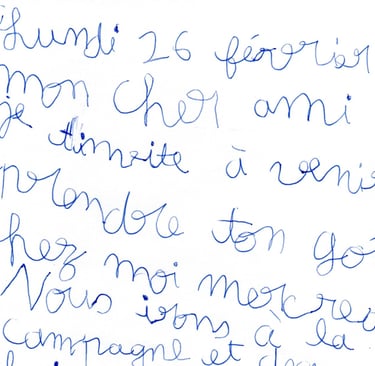 Lundi 26 février
mon cher ami
je t'invite à venir
prendre ton go
hez moi mercred
Nous irons à la
campagne et